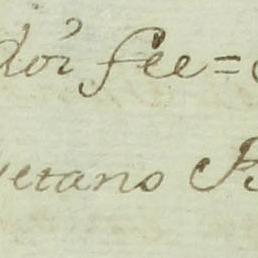 dor fee=
etano B